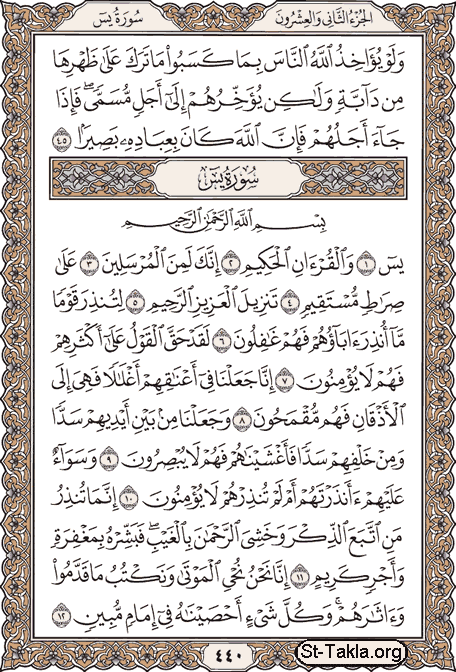 سُورَةُ يسٓ
الجُزْءُ الثَّانِي وَالعِشْرُونَ
وَلَوْ يُؤَاخِذُ ٱللَّهُ ٱلنَّاسَ بِمَا كَسَبُواْ مَا تَرَكَ عَلَىٰ ظَهْرِهَا
مِن دَآبَّةٍ وَلَٰكِن يُؤَخِّرُهُمْ إِلَىٰٓ أَجَلٍ مُّسَمًّىۖ فَإِذَا
جَآءَ أَجَلُهُمْ فَإِنَّ ٱللَّهَ كَانَ بِعِبَادِهِۦ بَصِيرًۢا ٤٥
سُورَةُ يسٓ
بِسْمِ ٱللَّهِ ٱلرَّحْمَٰنِ ٱلرَّحِيمِ
يسٓ ١ وَٱلْقُرْءَانِ ٱلْحَكِيمِ ٢ إِنَّكَ لَمِنَ ٱلْمُرْسَلِينَ ٣ عَلَىٰ
صِرَٰطٍ مُّسْتَقِيمٍ ٤ تَنزِيلَ ٱلْعَزِيزِ ٱلرَّحِيمِ ٥ لِتُنذِرَ قَوْمًا
مَّآ أُنذِرَ ءَابَآؤُهُمْ فَهُمْ غَٰفِلُونَ ٦ لَقَدْ حَقَّ ٱلْقَوْلُ عَلَىٰٓ أَكْثَرِهِمْ
فَهُمْ لَا يُؤْمِنُونَ ٧ إِنَّا جَعَلْنَا فِىٓ أَعْنَٰقِهِمْ أَغْلَٰلًا فَهِىَ إِلَى
ٱلْأَذْقَانِ فَهُم مُّقْمَحُونَ ٨ وَجَعَلْنَا مِنۢ بَيْنِ أَيْدِيهِمْ سَدًّا
وَمِنْ خَلْفِهِمْ سَدًّا فَأَغْشَيْنَٰهُمْ فَهُمْ لَا يُبْصِرُونَ ٩ وَسَوَآءٌ
عَلَيْهِمْ ءَأَنذَرْتَهُمْ أَمْ لَمْ تُنذِرْهُمْ لَا يُؤْمِنُونَ ١٠ إِنَّمَا تُنذِرُ
مَنِ ٱتَّبَعَ ٱلذِّكْرَ وَخَشِىَ ٱلرَّحْمَٰنَ بِٱلْغَيْبِۖ فَبَشِّرْهُ بِمَغْفِرَةٍ
وَأَجْرٍ كَرِيمٍ ١١ إِنَّا نَحْنُ نُحْىِ ٱلْمَوْتَىٰ وَنَكْتُبُ مَا قَدَّمُواْ
وَءَاثَٰرَهُمْۚ وَكُلَّ شَىْءٍ أَحْصَيْنَٰهُ فِىٓ إِمَامٍ مُّبِينٍ ١٢
٤٤٠
St-Takla.org